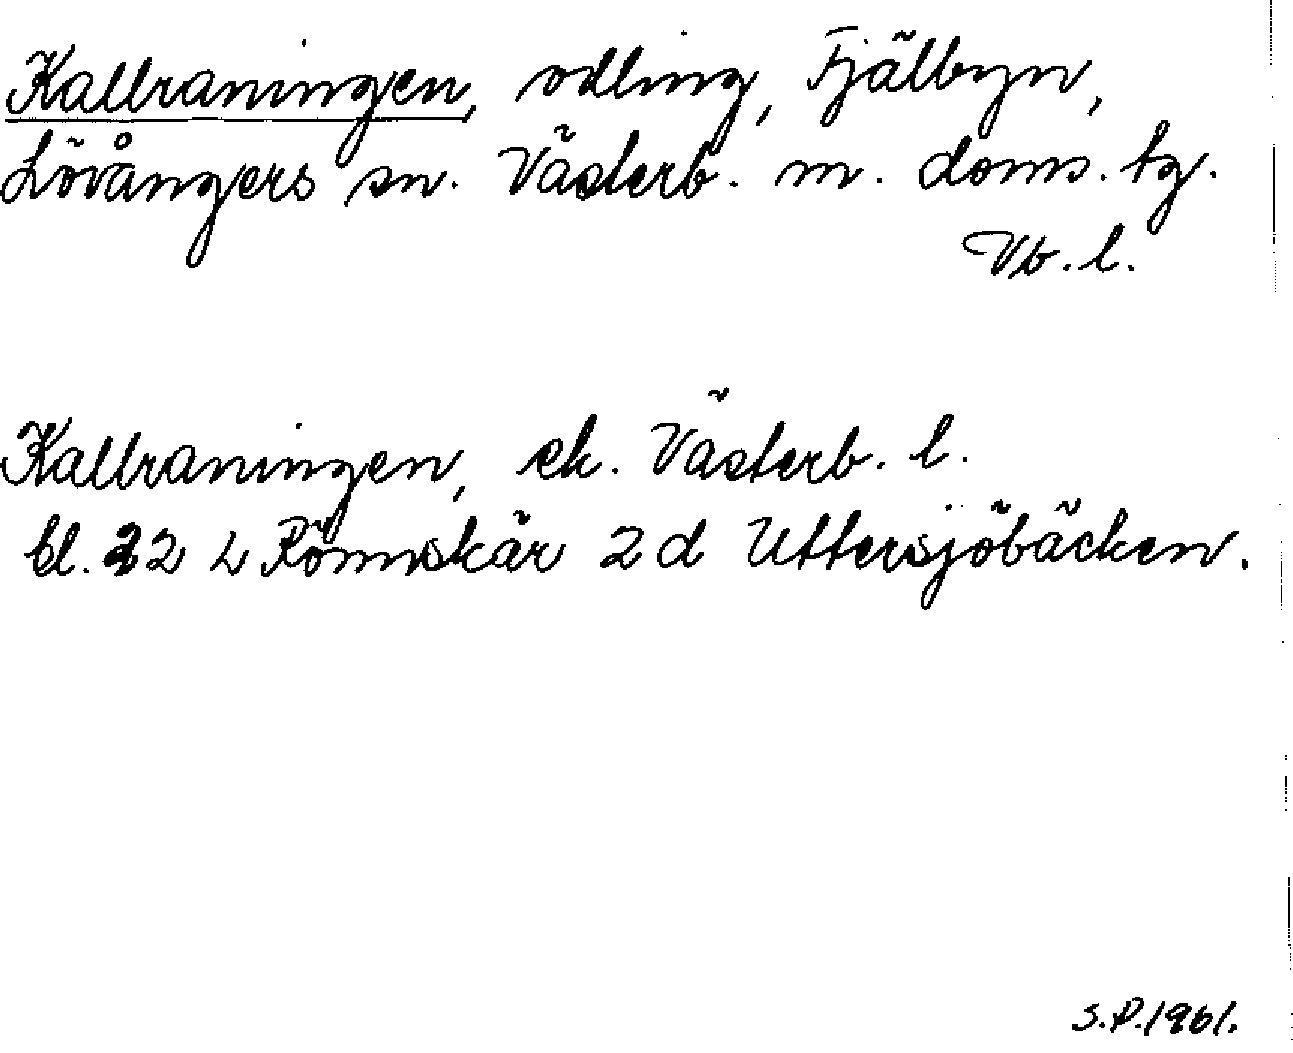 Kallraningen, odling, Fjälbyn,
Lövångers sn. Västerb. m. doms. tg.
Vb. l.
Kallraningen, ek. Västerb. l.
bl. 22 L Rönnskär 2 d Uttersjöbäcken.
S.P. 1961.